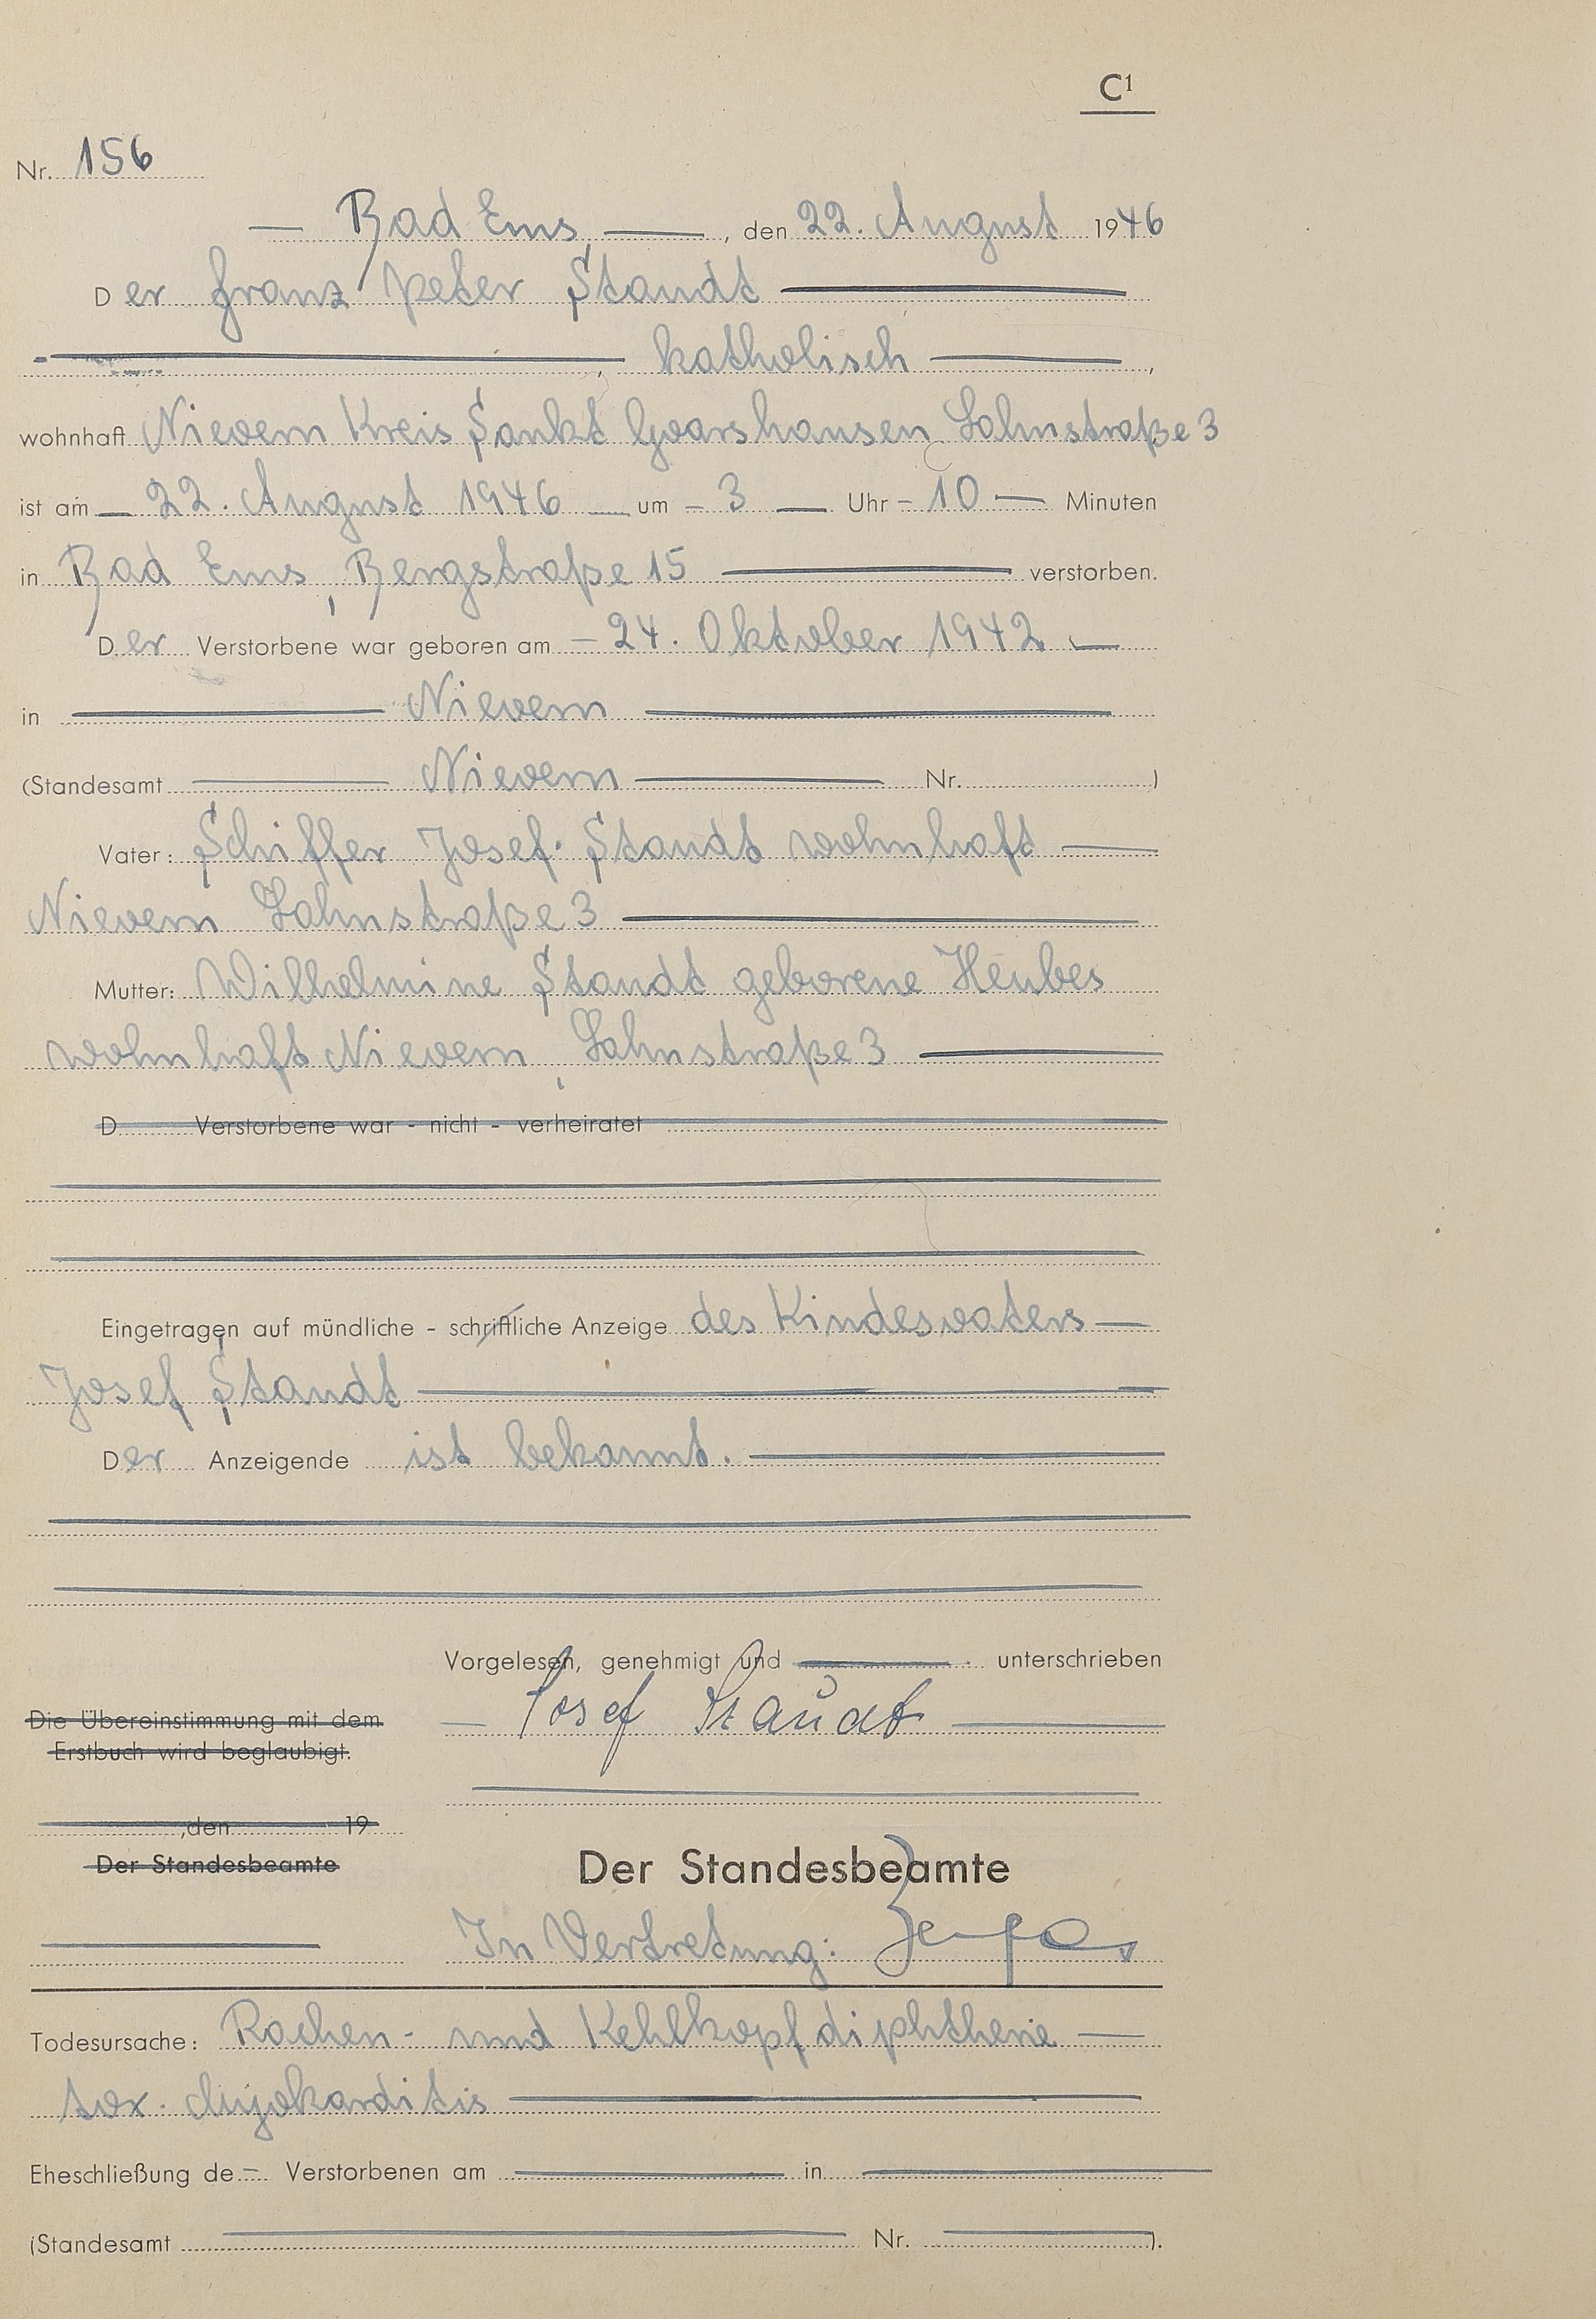 C1
Nr. 156
Bad Ems, den 22. August 1946
Der Franz Peter Staudt
, katholisch,
wohnhaft Nievern Kreis Sankt Goarshausen Lahnstraße 3
ist am 22. August 1946 um 3 Uhr 10 Minuten
in Bad Ems, Bergstraße 15 verstorben.
Der Verstorbene war geboren am 24. Oktober 1942
in Nievern
(Standesamt Nievern Nr. )
Vater: Schiffer Josef Staudt wohnhaft
Nievern Lahnstraße 3
Mutter: Wilhelmine Staudt geborene Heubes
wohnhaft Nievern, Lahnstraße 3
D Verstorbene war - nicht - verheiratet
Eingetragen auf mündliche - schriftliche Anzeige des Kindesvaters
Josef Staudt
Der Anzeigende ist bekannt.
Vorgelesen, genehmigt und unterschrieben
Josef Staudt
Die Übereinstimmung mit dem
Erstbuch wird beglaubigt.
, den 19
Der Standesbeamte
Der Standesbeamte
In Vertretung:
Todesursache: Rachen- und Kehlkopfdiphtherie
tox. Myokarditis
Eheschließung de - Verstorbenen am in
(Standesamt Nr. ).